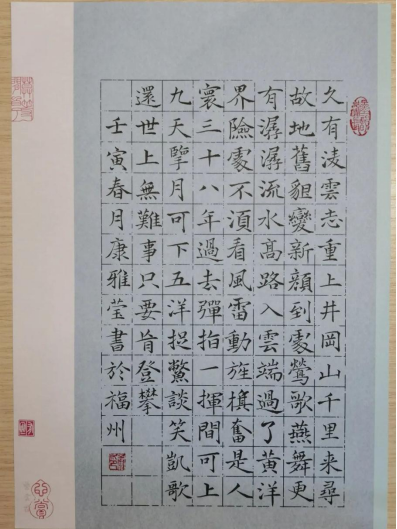 久有淩雲志重上井岡山千里来尋
故地舊貌變新顔到處鶯歌燕舞更
有潺潺流水髙路入雲端過了黄洋
界險處不須看風雷動旌旗奮是人
寰三十八年過去彈指一揮間可上
九天擥月可下五洋捉鱉談笑凱歌
還世上無難事只要肯登攀
壬寅春月康雅莹書於福州